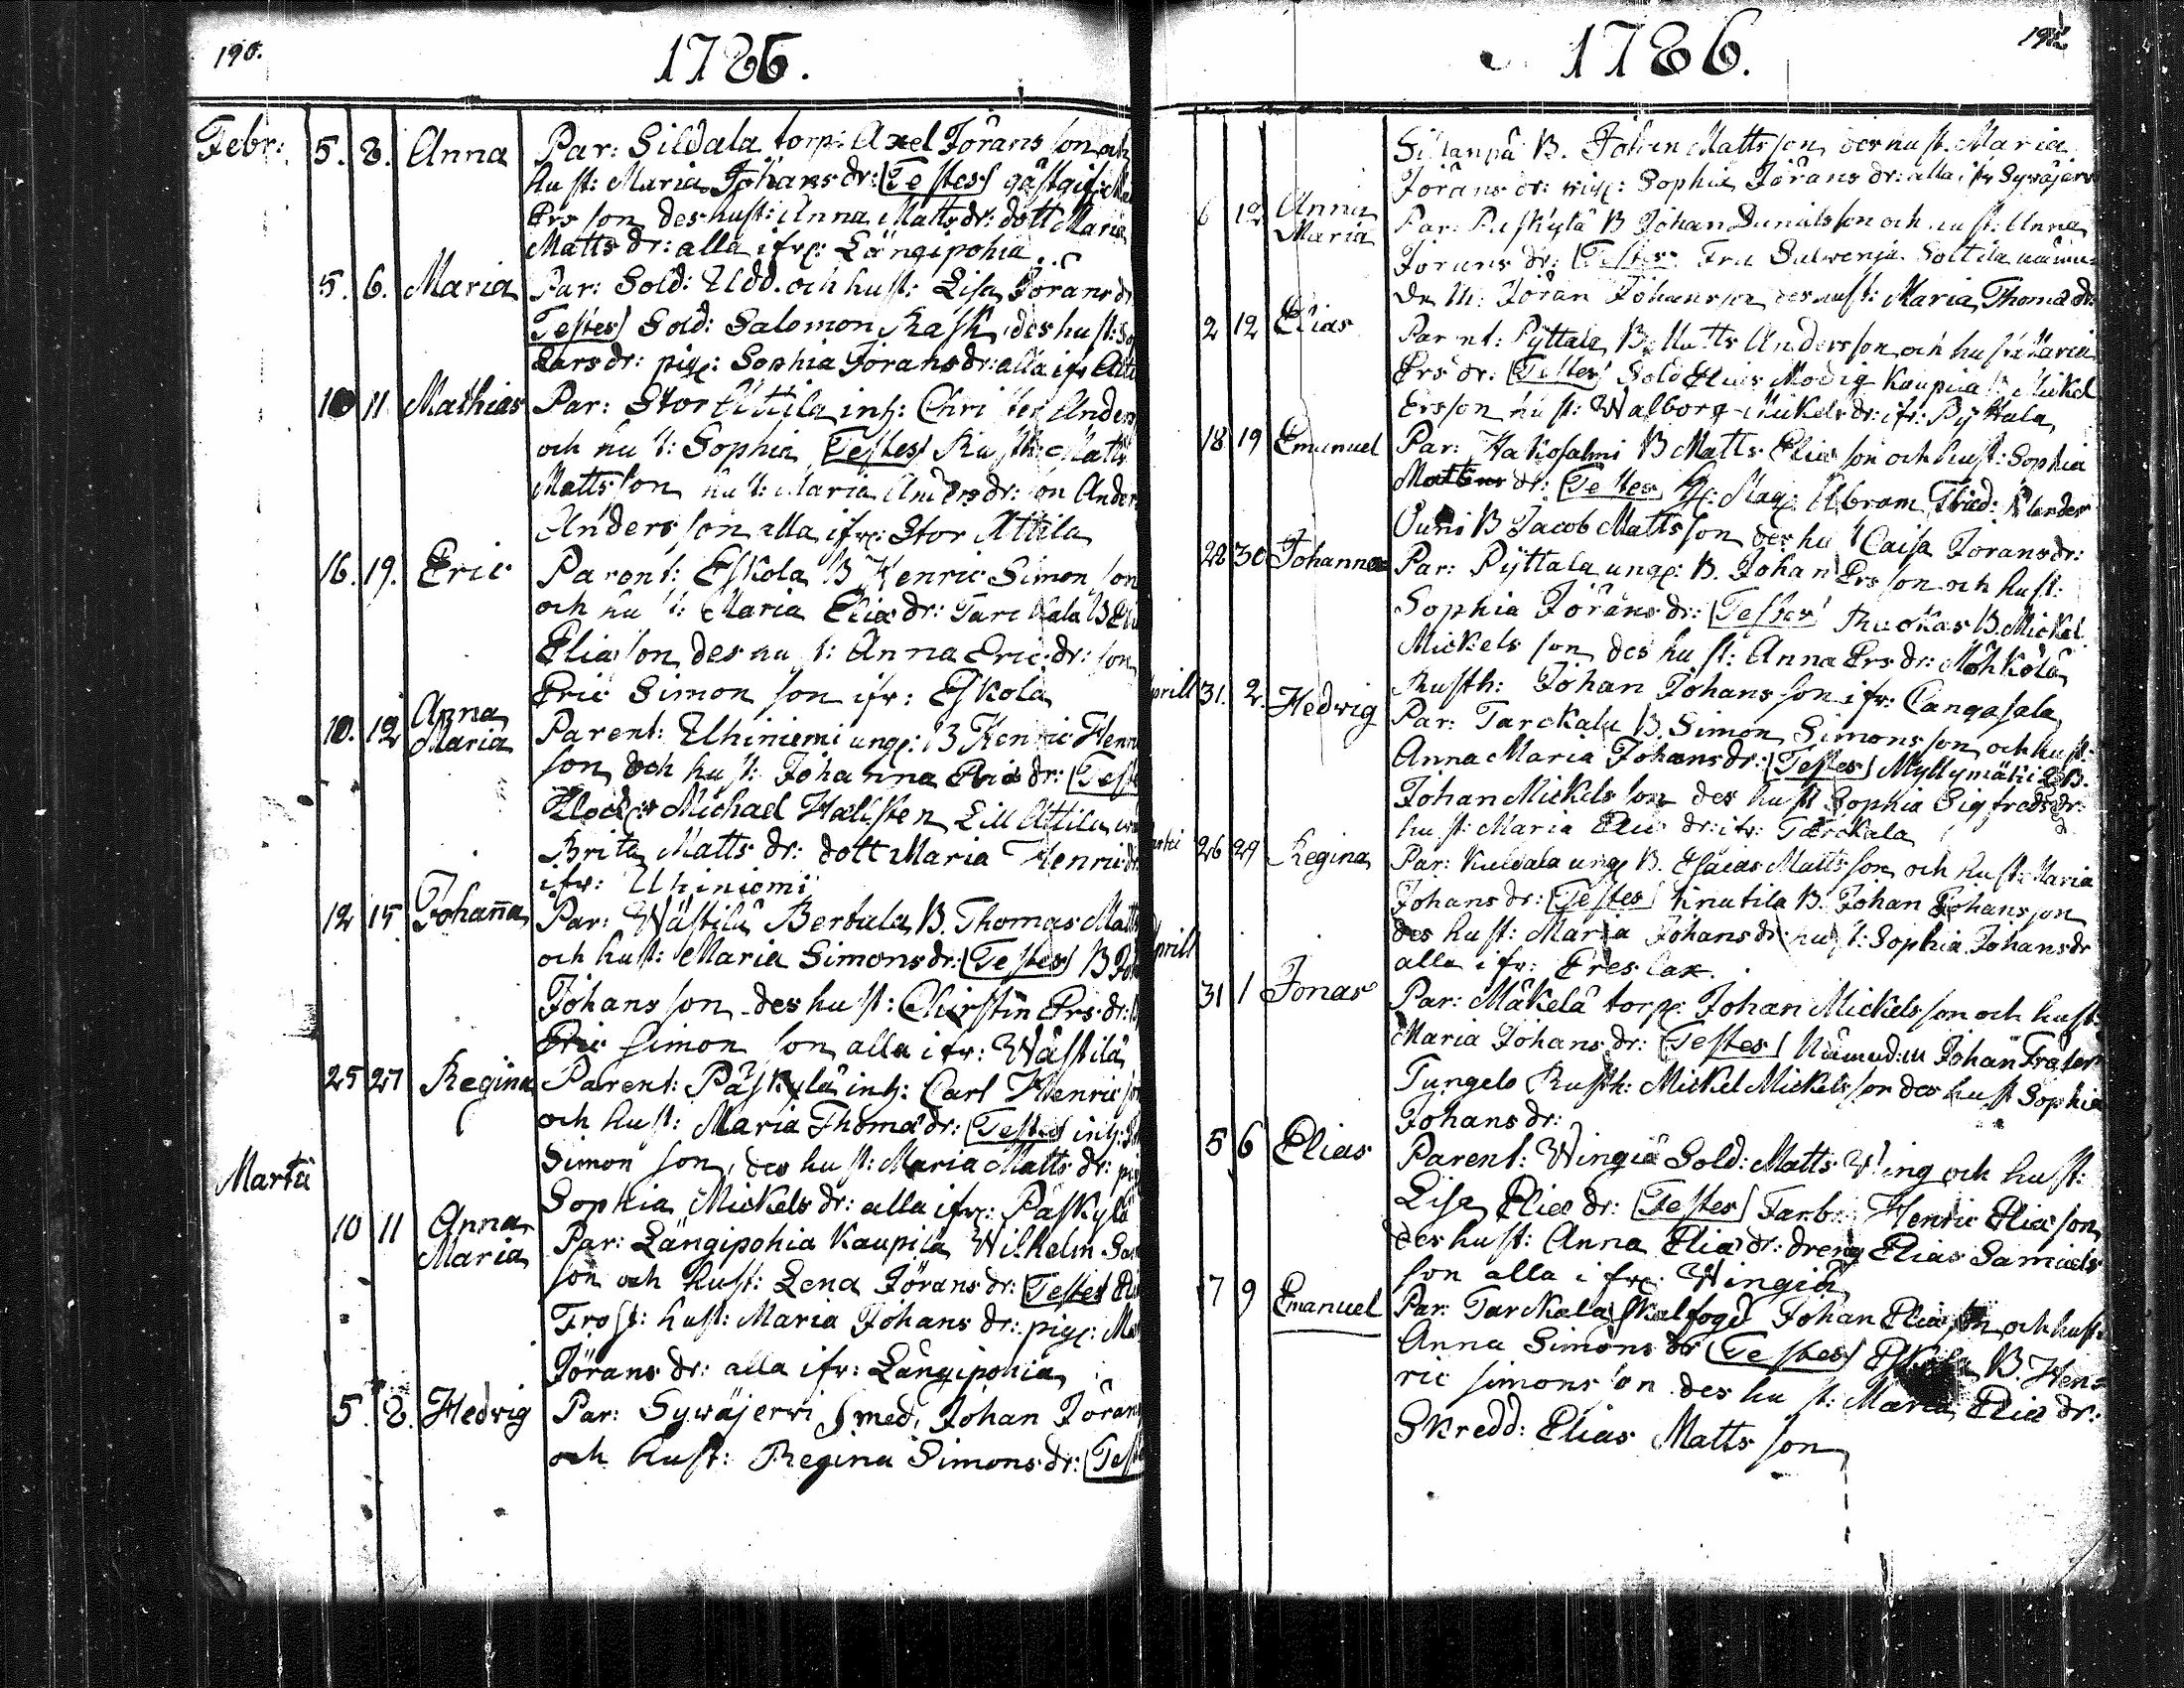 190.
1786.
Febr: 5. 8. Anna Par: Sildala torp: Axel Jörans son och
hust: Maria Johans dr: Testes gästgif:
Ers son des hust: Anna Matts dr: dott Maria
Matts dr: alla ifr: Längipohia
5. 6. Maria Par: Sold: Udd. och hust: Lisa Jörans dr
Testes Sold: Salomon Rask, des hust:
Lars dr: pig: Sophia Jörans dr: alla ifr
10 11 Mathias Par: Stor Attila inh: Christer Anders
och hust: Sophia Testes Rusth: Matts
Matts son hust: Maria Anders dr: son Anders
Anders son alla ifr: Stor Attila
16. 19. Eric Parent: Eskola B Henric Simon son
och hust: Maria Elias dr: Tarckala B
Elias son des hust: Anna Eric dr: son
Eric Simon son ifr: Eskola
10. 12 Anna Maria Parent: Uhiniemi ung: B Henric Henric
son och hust: Johanna Elias dr: Teste
Klock: Michael Hallsten Lill Attila
Brita Matts dr: dott Maria Henric dr
ifr: Uhiniemi
12 15 Johanna Par: Wästilä Bertula B. Thomas Matts
och hust: Maria Simons dr: Testes B
Johans son des hust: Chirstin Ers dr:
Eric Simon son alla ifr: Wästilä
25 27 Regina Parent: Päskylä inh: Carl Henric son
och hust: Maria Thomæ dr: Testes inh:
Martii Simon son, des hust: Maria Matts dr:
Sophia Mickels dr: alla ifr: Päskylä
10 11 Anna Maria Par: Längipohia Kaupila Wilhelm
son och hust: Lena Jörans dr: Testes
Frost: hust: Maria Johans dr: pig:
Jörans dr: alla ifr: Längipohia
5. 8. Hedvig Par: Sywäjerwi Smed, Johan Jörans
och hust: Regina Simons dr: Test
1786.
Sillanpä B. Johan Matts son des hust. Maria
Jörans dr: pig: Sophia Jörans dr: alla ifr Sywäjerw
6 12 Anna Maria Par: Päskylä B Johan Danielsson och hust: Anna
Jörans dr: Testes: Fru Soltila nämn-
de M: Jöran Johansson des hust: Maria Thomæ dr:
2 12 Elias Parent: Pyttala B. Matts Andersson och hust: Maria
Ers dr: Testes Sold Elias Modig Kaupila B Mickel
Ersson hust: Walborg Mickels dr: ifr: Pyttala
18 19 Emanuel Par: Hakosalmi B Matts Elias son och hust: Sophia
Matts dr: Testes H: Mag: Abram
Ouni B Jacob Matts son des hust Caisa Jörans dr:
28 30 Johannes Par: Pyttala ung: B. Johan Ers son och hust:
Sophia Jörans dr: Testes Ruokas B. Mickel
Mickels son des hust: Anna Ers dr: Möhkölä
Rusth: Johan Johans son ifr: Cangasala
prill 31. 2. Hedvig Par: Tarckala B. Simon Simons son och hust:
Anna Maria Johans dr: Testes Myllymäki B.
Johan Mickels son des hust Sophia Sigfreds dr:
hust: Maria Elias dr: ifr: Tarckala
26 29 Regina Par: Kuldala ung B. Esaias Matts son och hust: Maria
Johans dr: Testes Knutila B. Johan Johans son
des hust: Maria Johans dr: hust: Sophia Johans dr
prill alla ifr: Ereslax.
31 1 Jonas Par: Mäkelä torp: Johan Mickels son och hust:
Maria Johans dr: Testes Nämnd:M Johan Frater
Tungelo Rusth: Mickel Mickels son des hust Sophia
Johans dr:
5 6 Elias Parent: Wingiä Sold: Matts Wing och hust:
Lisa Elias dr: Testes Farb: Henric Elias son
des hust: Anna Elias dr: dreng Elias Samuels
son alla ifr: Wingiä
7 9 Emanuel Par: Tarckala Skalfogd Johan Elias son och hust:
Anna Simons dr Testes Eskola B. Hen-
ric Simons son des hust: Maria Elias dr:
Skredd: Elias Matts son